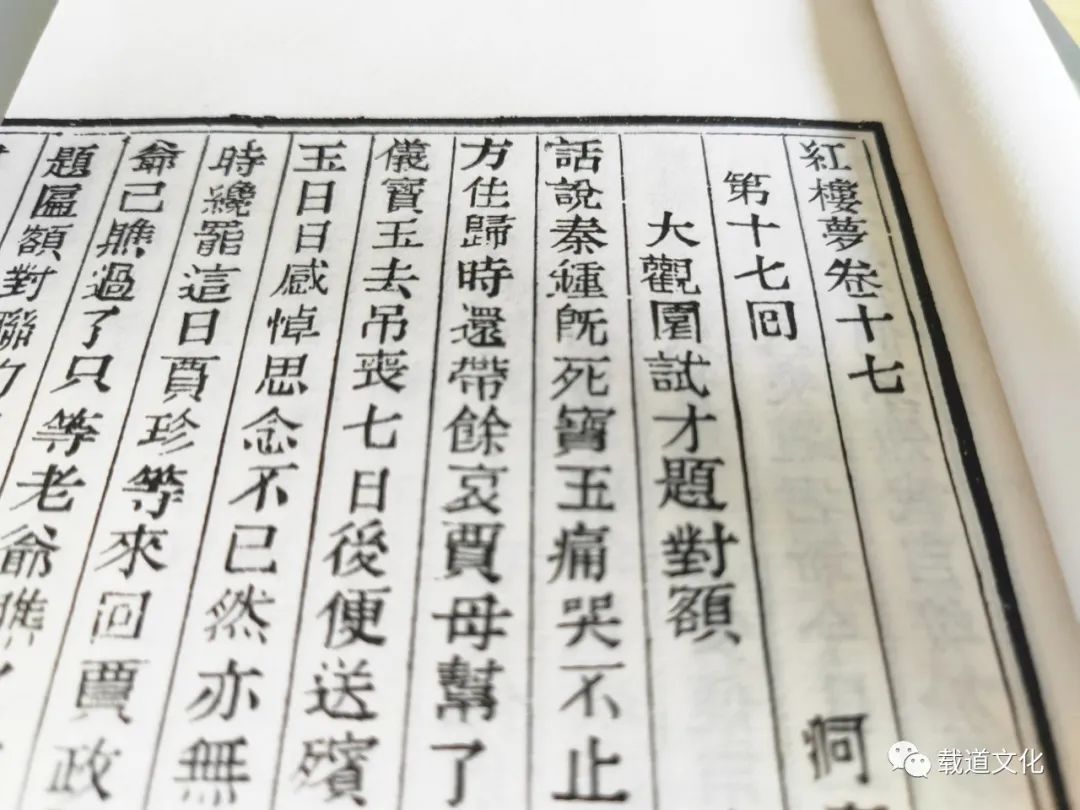 紅樓夢卷十七
第十七回
大觀園試才題對額
話說秦鍾旣死寶玉痛哭不止
方住歸時還帶餘哀賈母幫了
儀寶玉去吊喪七日後便送殯
玉日日感悼思念不已然亦無
時纔罷這日賈珍等來回賈政
爺已瞧過了只等老爺瞧
題匾額對聯
载道文化